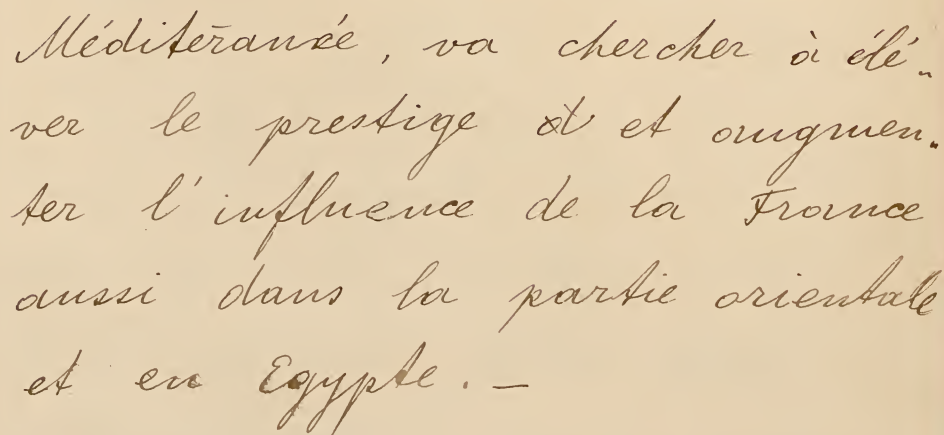 Méditerranée, va chercher à élé-
ver le prestige et augmen-
ter l'influence de la France
aussi dans la partie orientale
et en Egypte. —